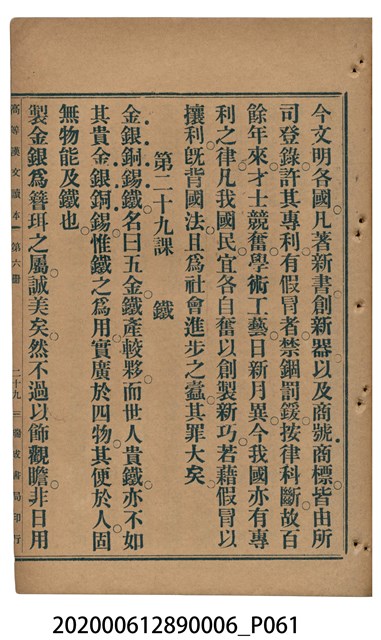 今文明各國。凡著新書。創新器。以及商號商標。皆由所
司登錄。許其專利。有假冒者。禁錮罰鍰。按律科斷。故百
餘年來。才士競奮。學術工藝。日新月異。今我國亦有專
利之律。凡我國民。宜各自奮。以創製新巧。若藉假冒以
攘利。旣背國法。且爲社會進步之蠹。其罪大矣。
第二十九課　鐵
金銀銅錫鐵。名曰五金。鐵產較夥。而世人貴鐵。亦不如
其貴金銀銅錫。惟鐵之爲用。實廣於四物。其便於人。固
無物能及鐵也。
製金銀爲簪珥之屬。誠美矣。然不過以飾觀瞻。非日用
高等漢文讀本　第六冊　二十九
202000612890006_P061